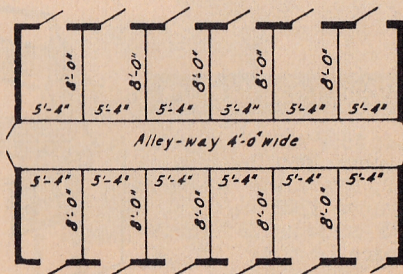 8'-0" 8'-0" 8'-0" 8'-0" 8'-0"
5'-4" 5'-4" 5'-4" 5'-4" 5'-4" 5'-4"
Alley-way 4'-0" wide
5'-4" 5'-4" 5'-4" 5'-4" 5'-4" 5'-4"
8'-0" 8'-0" 8'-0" 8'-0" 8'-0"